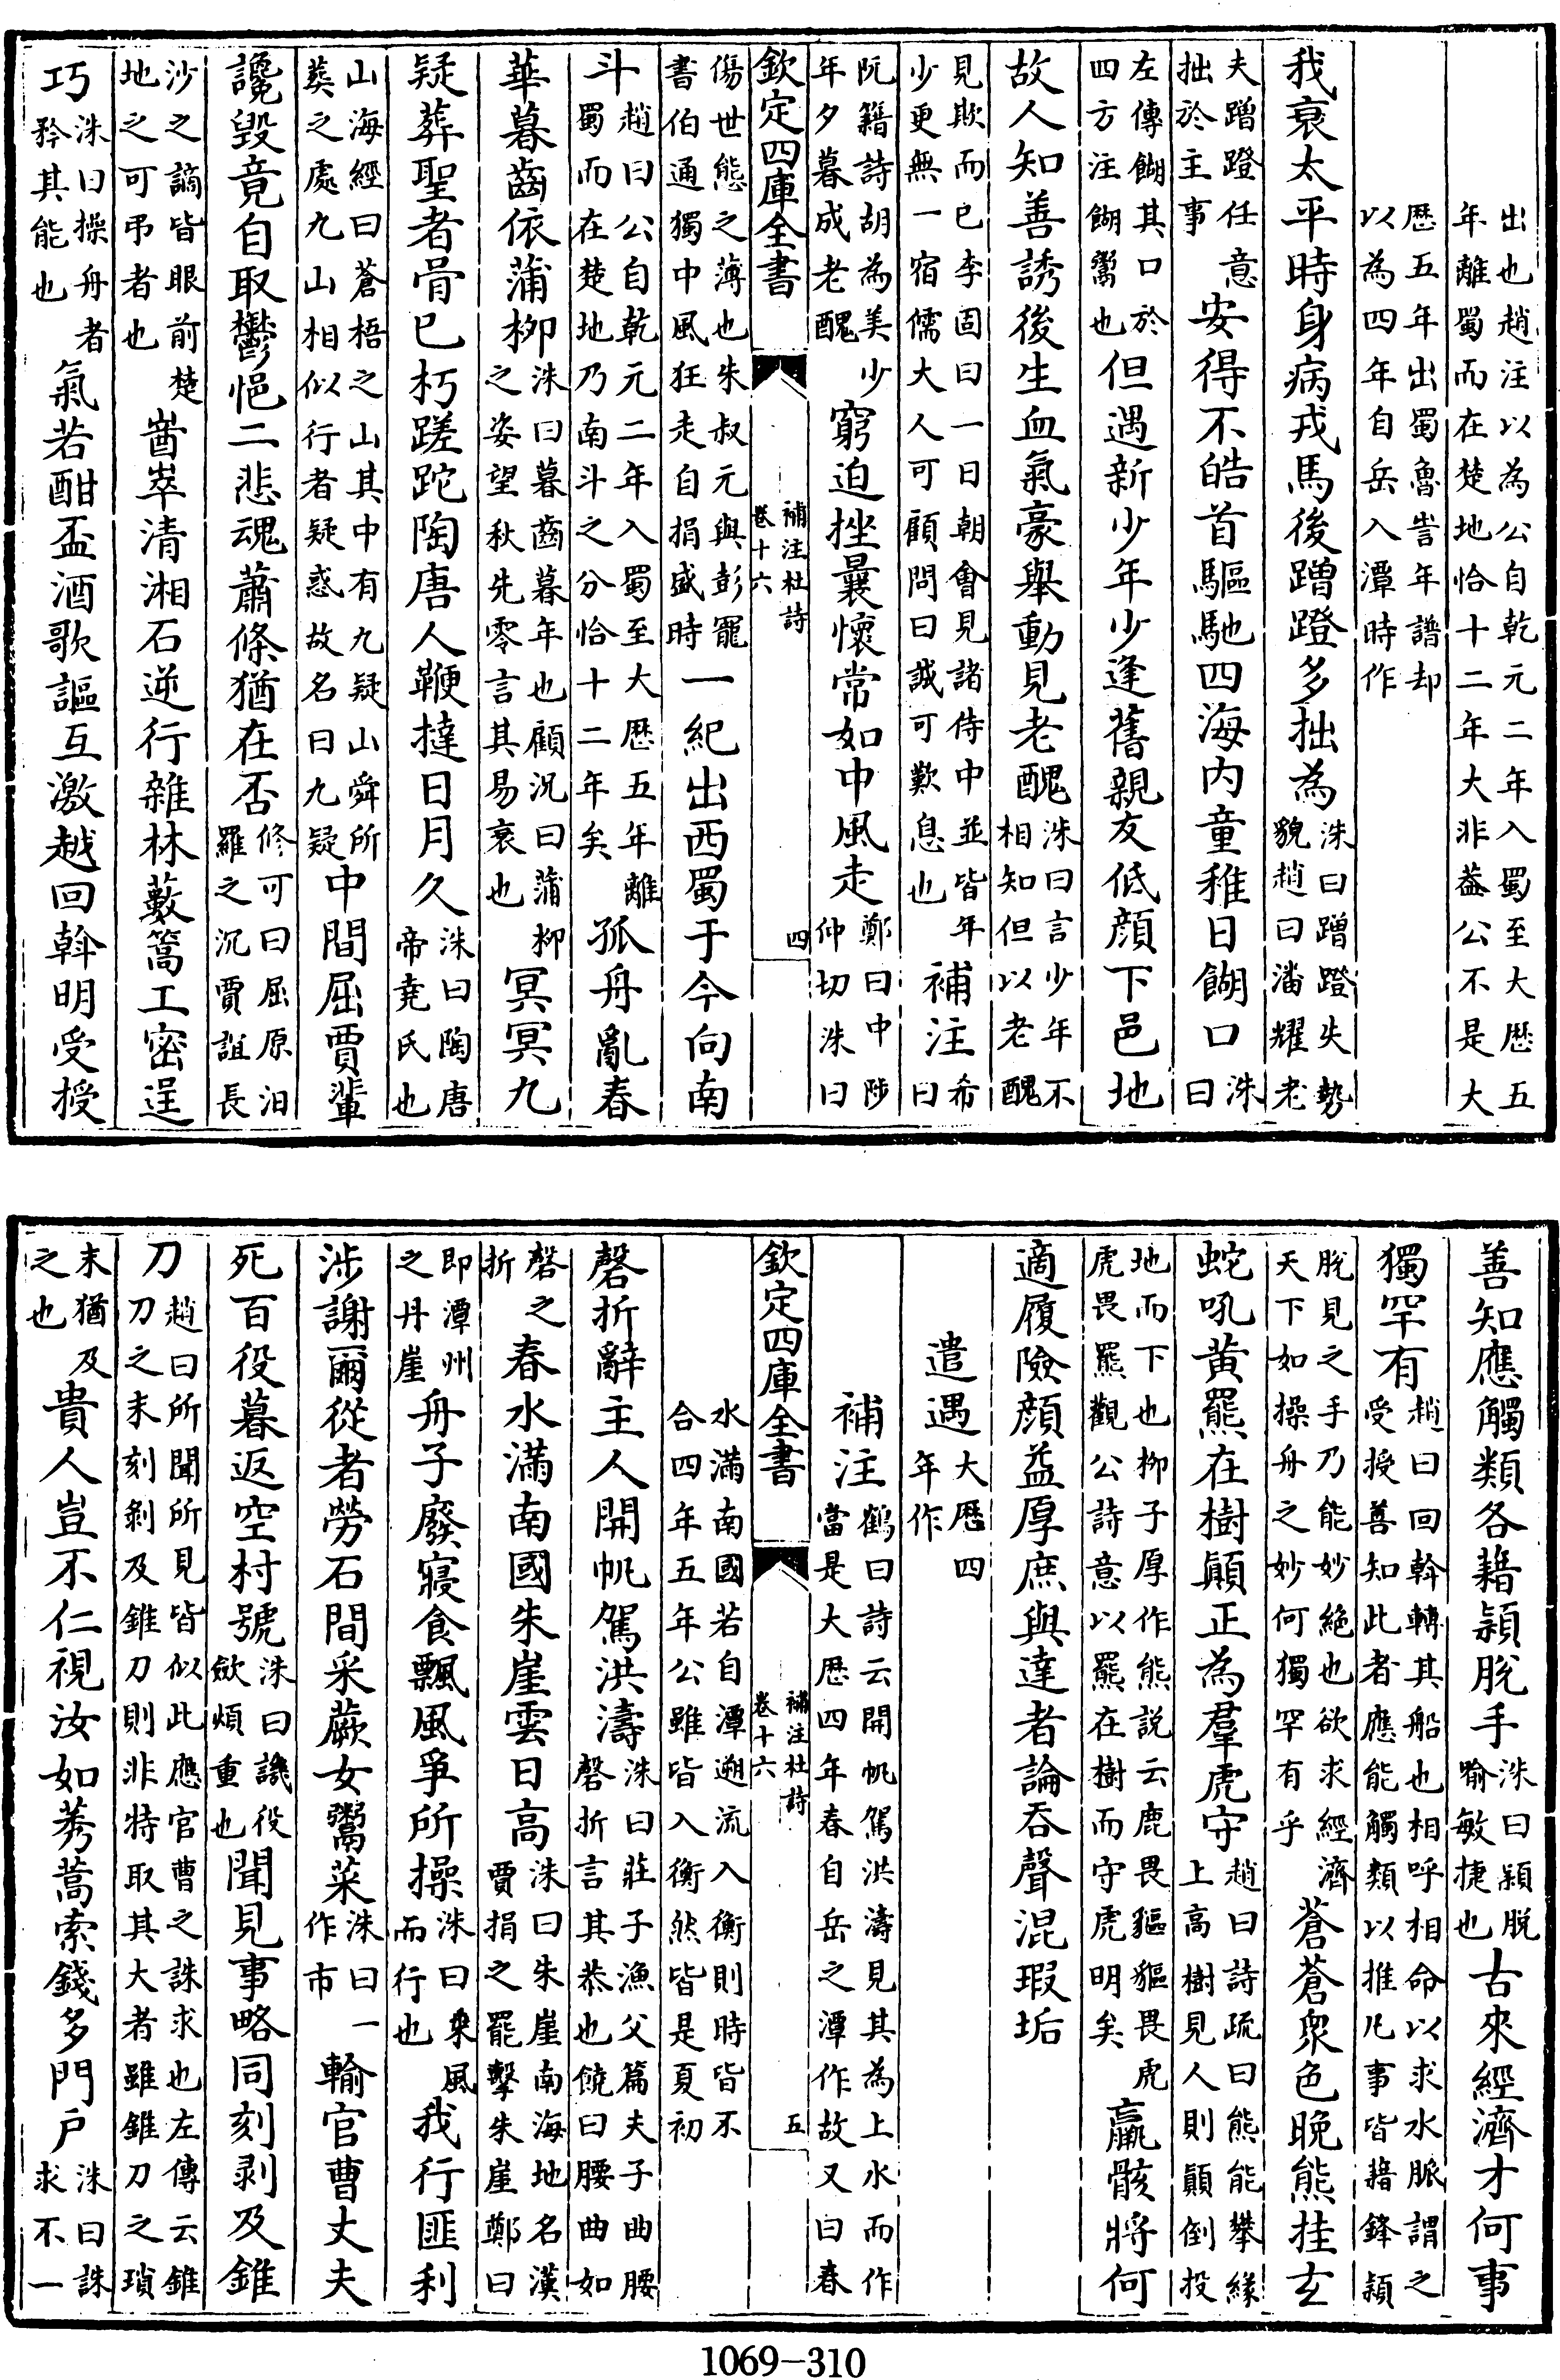 出也趙注以為公自乾元二年入蜀至大歷五
年離蜀而在楚地恰十二年大非葢公不是大
歷五年出蜀魯訔年譜却
以為四年自岳入潭時作
我衰太平時身病戎馬後蹭蹬多拙為洙曰蹭蹬失勢貌趙曰潘耀老
夫蹭蹬任意拙於主事安得不皓首驅馳四海内童稚日餬口洙曰
左傳餬其口於四方注餬鬻也但遇新少年少逢舊親友低顔下邑地
故人知善誘後生血氣豪舉動見老醜洙曰言少年不相知但以老醜
見欺而已李固曰一日朝會見諸侍中並皆年少更無一宿儒大人可顧問曰誠可歎息也補注希曰
阮籍詩胡為美少年夕暮成老醜窮迫挫曩懷常如中風走鄭曰中陟仲切洙曰
欽定四庫全書
補注杜詩
卷十六
四
傷世態之薄也朱叔元與彭寵書伯通獨中風狂走自捐盛時一紀出西蜀于今向南
斗趙曰公自乾元二年入蜀至大歷五年離蜀而在楚地乃南斗之分恰十二年矣孤舟亂春
華暮齒依蒲柳洙曰暮齒暮年也顧況曰蒲柳之姿望秋先零言其易衰也冥冥九
疑葬聖者骨已朽蹉跎陶唐人鞭撻日月久洙曰陶唐帝堯氏也
山海經曰蒼梧之山其中有九疑山舜所葬之處九山相似行者疑惑故名曰九疑中間屈賈輩
讒毀竟自取鬱悒二悲魂蕭條猶在否修可曰屈原汨羅之沉賈誼長
沙之謫皆眼前楚地之可弔者也崷崒清湘石逆行雜林藪篙工密逞
巧洙曰操舟者矜其能也氣若酣盃酒歌謳互激越回斡明受授
善知應觸類各藉潁脫手洙曰潁脫喻敏捷也古來經濟才何事
獨罕有趙曰回斡轉其船也相呼相命以求水脈謂之受授善知此者應能觸類以推凡事皆藉鋒潁
脫見之手乃能妙絶也欲求經濟天下如操舟之妙何獨罕有乎蒼蒼衆色晚熊挂玄
蛇吼黄羆在樹顚正為羣虎守趙曰詩疏曰熊能攀緣上高樹見人則顚倒投
地而下也柳子厚作熊説云鹿畏貙貙畏虎虎畏羆觀公詩意以羆在樹而守虎明矣羸骸將何
適履險顔益厚庶與達者論吞聲混瑕垢
遣遇大歷四年作
補注鶴曰詩云開帆駕洪濤見其為上水而作當是大歷四年春自岳之潭作故又曰春
欽定四庫全書
補注杜詩
卷十六
五
水滿南國若自潭遡流入衡則時皆不合四年五年公雖皆入衡然皆是夏初
磬折辭主人開帆駕洪濤洙曰莊子漁父篇夫子曲腰磬折言其恭也饒曰腰曲如
磬之折春水滿南國朱崖雲日高洙曰朱崖南海地名漢賈捐之罷擊朱崖鄭曰
即潭州之丹崖舟子廢寢食飄風爭所操洙曰乘風而行也我行匪利
涉謝爾從者勞石間采蕨女鬻菜洙曰一作市輸官曹丈夫
死百役暮返空村號洙曰譏役歛煩重也聞見事略同刻剥及錐
刀趙曰所聞所見皆似此應官曹之誅求也左傳云錐刀之末刻剥及錐刀則非特取其大者雖錐刀之瑣
末猶及之也貴人豈不仁視汝如莠蒿索錢多門户洙曰誅求不一
1069-310